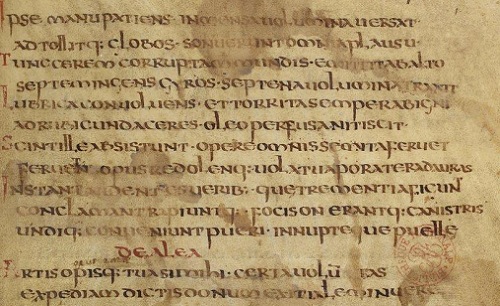 IPSE MANU PATIENS · INMENSA VOLUMINA VERSAT ·
ADTOLLITQ; GLOBOS · SONUERUNT OMNIA PLAUSU ·
TUNC CEREM CORRUPTAM UNDIS · EMITTIT AB ALTO
SEPTEM INGENS GYROS · SEPTENA VOLUMINA TRAXIT
LUBRICA CONVOLVENS · ET TORRITA SEMPER AB IGNI
AD RUBICUNDA CERES · OLEO PERFUSA NITISCIT ·
SCINTILLE ABSISTUNT · OPERE OMNIS SEMITA FERVET
FERVET OPUS REDOLENQ; VOLAT VAPOR ATER AD AURAS
INSTANT VERIB; · QUE TREMENTIA FIGUNT
CONCLAMANT RAPIUNTQ; · FOCIS ONERANTQ; CANISTRIS
UNDIQ; CONVENIUNT PUERI · INNUPTEQUE PUELLE
DE ALEA
ARTIS OPISQ; TUA SI MIHI · CERTA
EXPEDIAM DICTIS DONUM EXITIALE